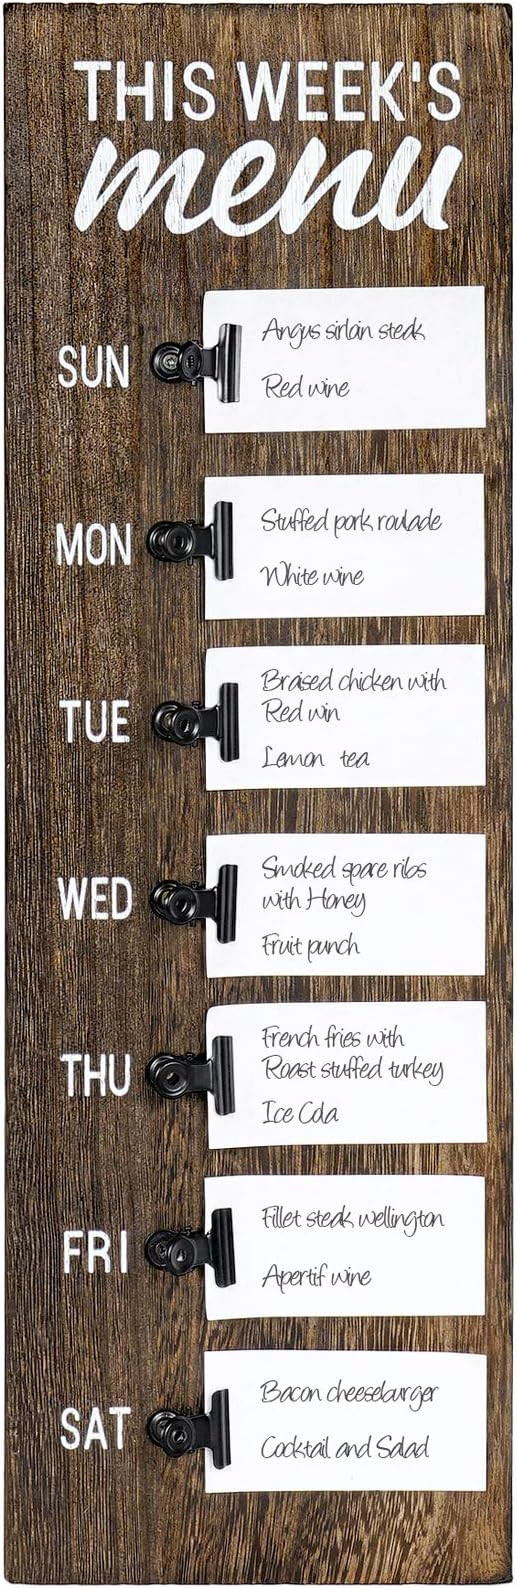 THIS WEEK'S
menu
SUN
Angus sirloin steak
Red wine
MON
Stuffed pork roulade
White wine
TUE
Braised chicken with
Red win
Lemon tea
WED
Smoked spare ribs
with Honey
Fruit punch
THU
French fries with
Roast stuffed turkey
Ice Cola
FRI
Fillet steak wellington
Apertif wine
SAT
Bacon cheeseburger
Cocktail and Salad